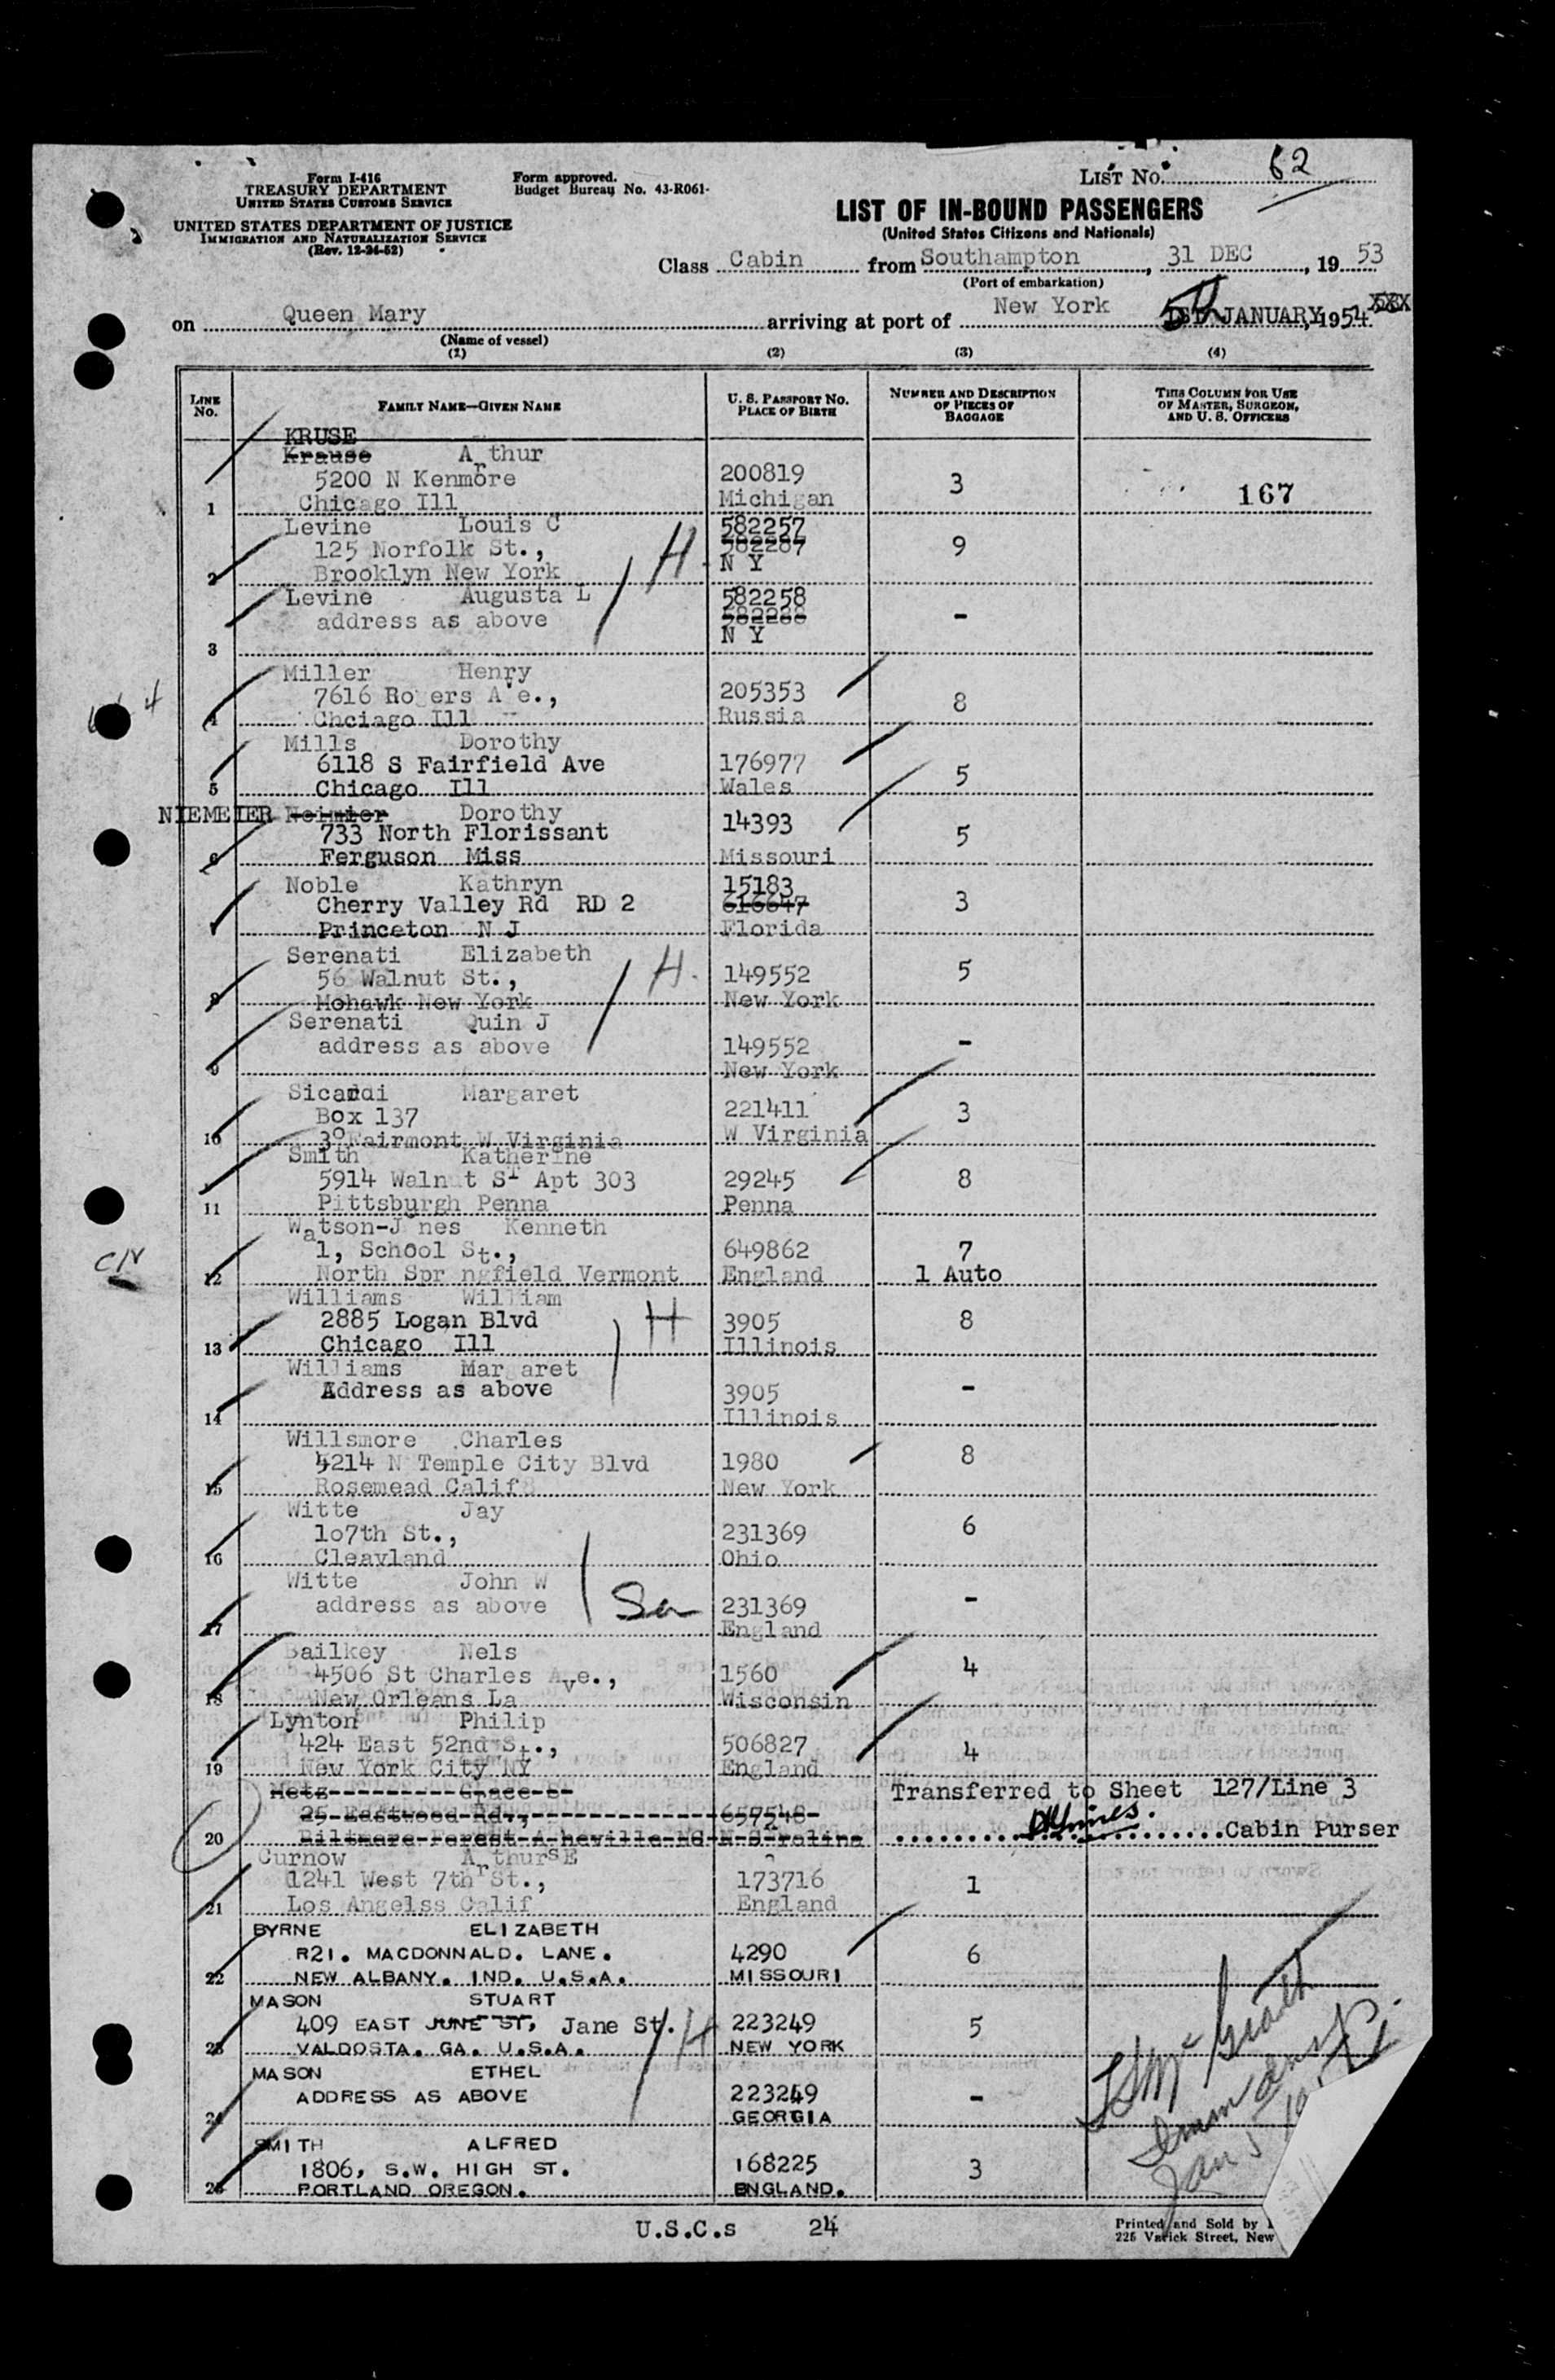 Form I-416
TREASURY DEPARTMENT
UNITED STATES CUSTOMS SERVICE
UNITED STATES DEPARTMENT OF JUSTICE
IMMIGRATION AND NATURALIZATION SERVICE
(Rev. 12-24-52)
Form approved.
Budget Bureau No. 43-R061-
LIST No. 62
LIST OF IN-BOUND PASSENGERS
(United States Citizens and Nationals)
Class Cabin from Southampton, 31 DEC, 19 53
(Port of embarkation)
on Queen Mary arriving at port of New York 5th JANUARY, 1954
(Name of vessel)
(1) (2) (3) (4)
LINE No.
FAMILY NAME—GIVEN NAME
U. S. PASSPORT No. PLACE OF BIRTH
NUMBER AND DESCRIPTION OF PIECES OF BAGGAGE
THIS COLUMN FOR USE OF MASTER, SURGEON, AND U. S. OFFICERS
KRUSE
Krause Arthur
5200 N Kenmore 200819 3 167
1 Chicago Ill Michigan
Levine Louis C 582257
125 Norfolk St., 582287 9
2 Brooklyn New York N Y
H.
Levine Augusta L 582258
address as above 582288 -
3 N Y
Miller Henry
7616 Ro ers A e., 205353 8
4 Chciago Ill Russia
Mills Dorothy
6118 S Fairfield Ave 176977 5
5 Chicago Ill Wales
NIEMEIER Neimier Dorothy
733 North Florissant 14393 5
6 Ferguson Miss Missouri
Noble Kathryn 15183
Cherry Valley Rd RD 2 616647 3
7 Princeton N J Florida
Serenati Elizabeth
56 Walnut St., 149552 5
8 Mohawk New York New York
H.
Serenati Quin J
address as above 149552 -
9 New York
Sicardi Margaret
Box 137 221411 3
10 Fairmont W Virginia W Virginia
Smith Katherine
5914 Walnut St Apt 303 29245 8
11 Pittsburgh Penna Penna
Watson-J nes Kenneth
1, School St., 649862 7
12 North Spr ngfield Vermont England 1 Auto
Williams William
2885 Logan Blvd 3905 8
13 Chicago Ill Illinois
H
Williams Mar aret
Address as above 3905 -
14 Illinois
Willsmore Charles
5214 N Temple City Blvd 1980 8
15 Rosemead Calif New York
Witte Jay
1o7th St., 231369 6
16 Cleavland Ohio
Witte John W
address as above 231369 -
17 England
Bailkey Nels
4506 St Charles Ave., 1560 4
18 New Orleans La Wisconsin
Lynton Philip
424 East 52nd St., 506827 4
19 New York City NY England
Metz Grace S Transferred to Sheet 127/Line 3
25 Eastwood Rd., 657548
20 Biltmore Forest A heville N Carolina Cabin Purser
Curnow Arthur E
1241 West 7th St., 173716 1
21 Los Angelss Calif England
BYRNE ELIZABETH
R21. MACDONNALD. LANE. 4290 6
22 NEW ALBANY. IND. U.S.A. MISSOURI
MASON STUART
409 EAST JUNE ST, Jane St. 223249 5
23 VALDOSTA. GA. U.S.A. NEW YORK
H
MASON ETHEL
ADDRESS AS ABOVE 223249 -
24 GEORGIA
SMITH ALFRED
1806, S.W. HIGH ST. 168225 3
25 PORTLAND OREGON. ENGLAND.
U.S.C.s 24
Printed and Sold by
225 Varick Street, New